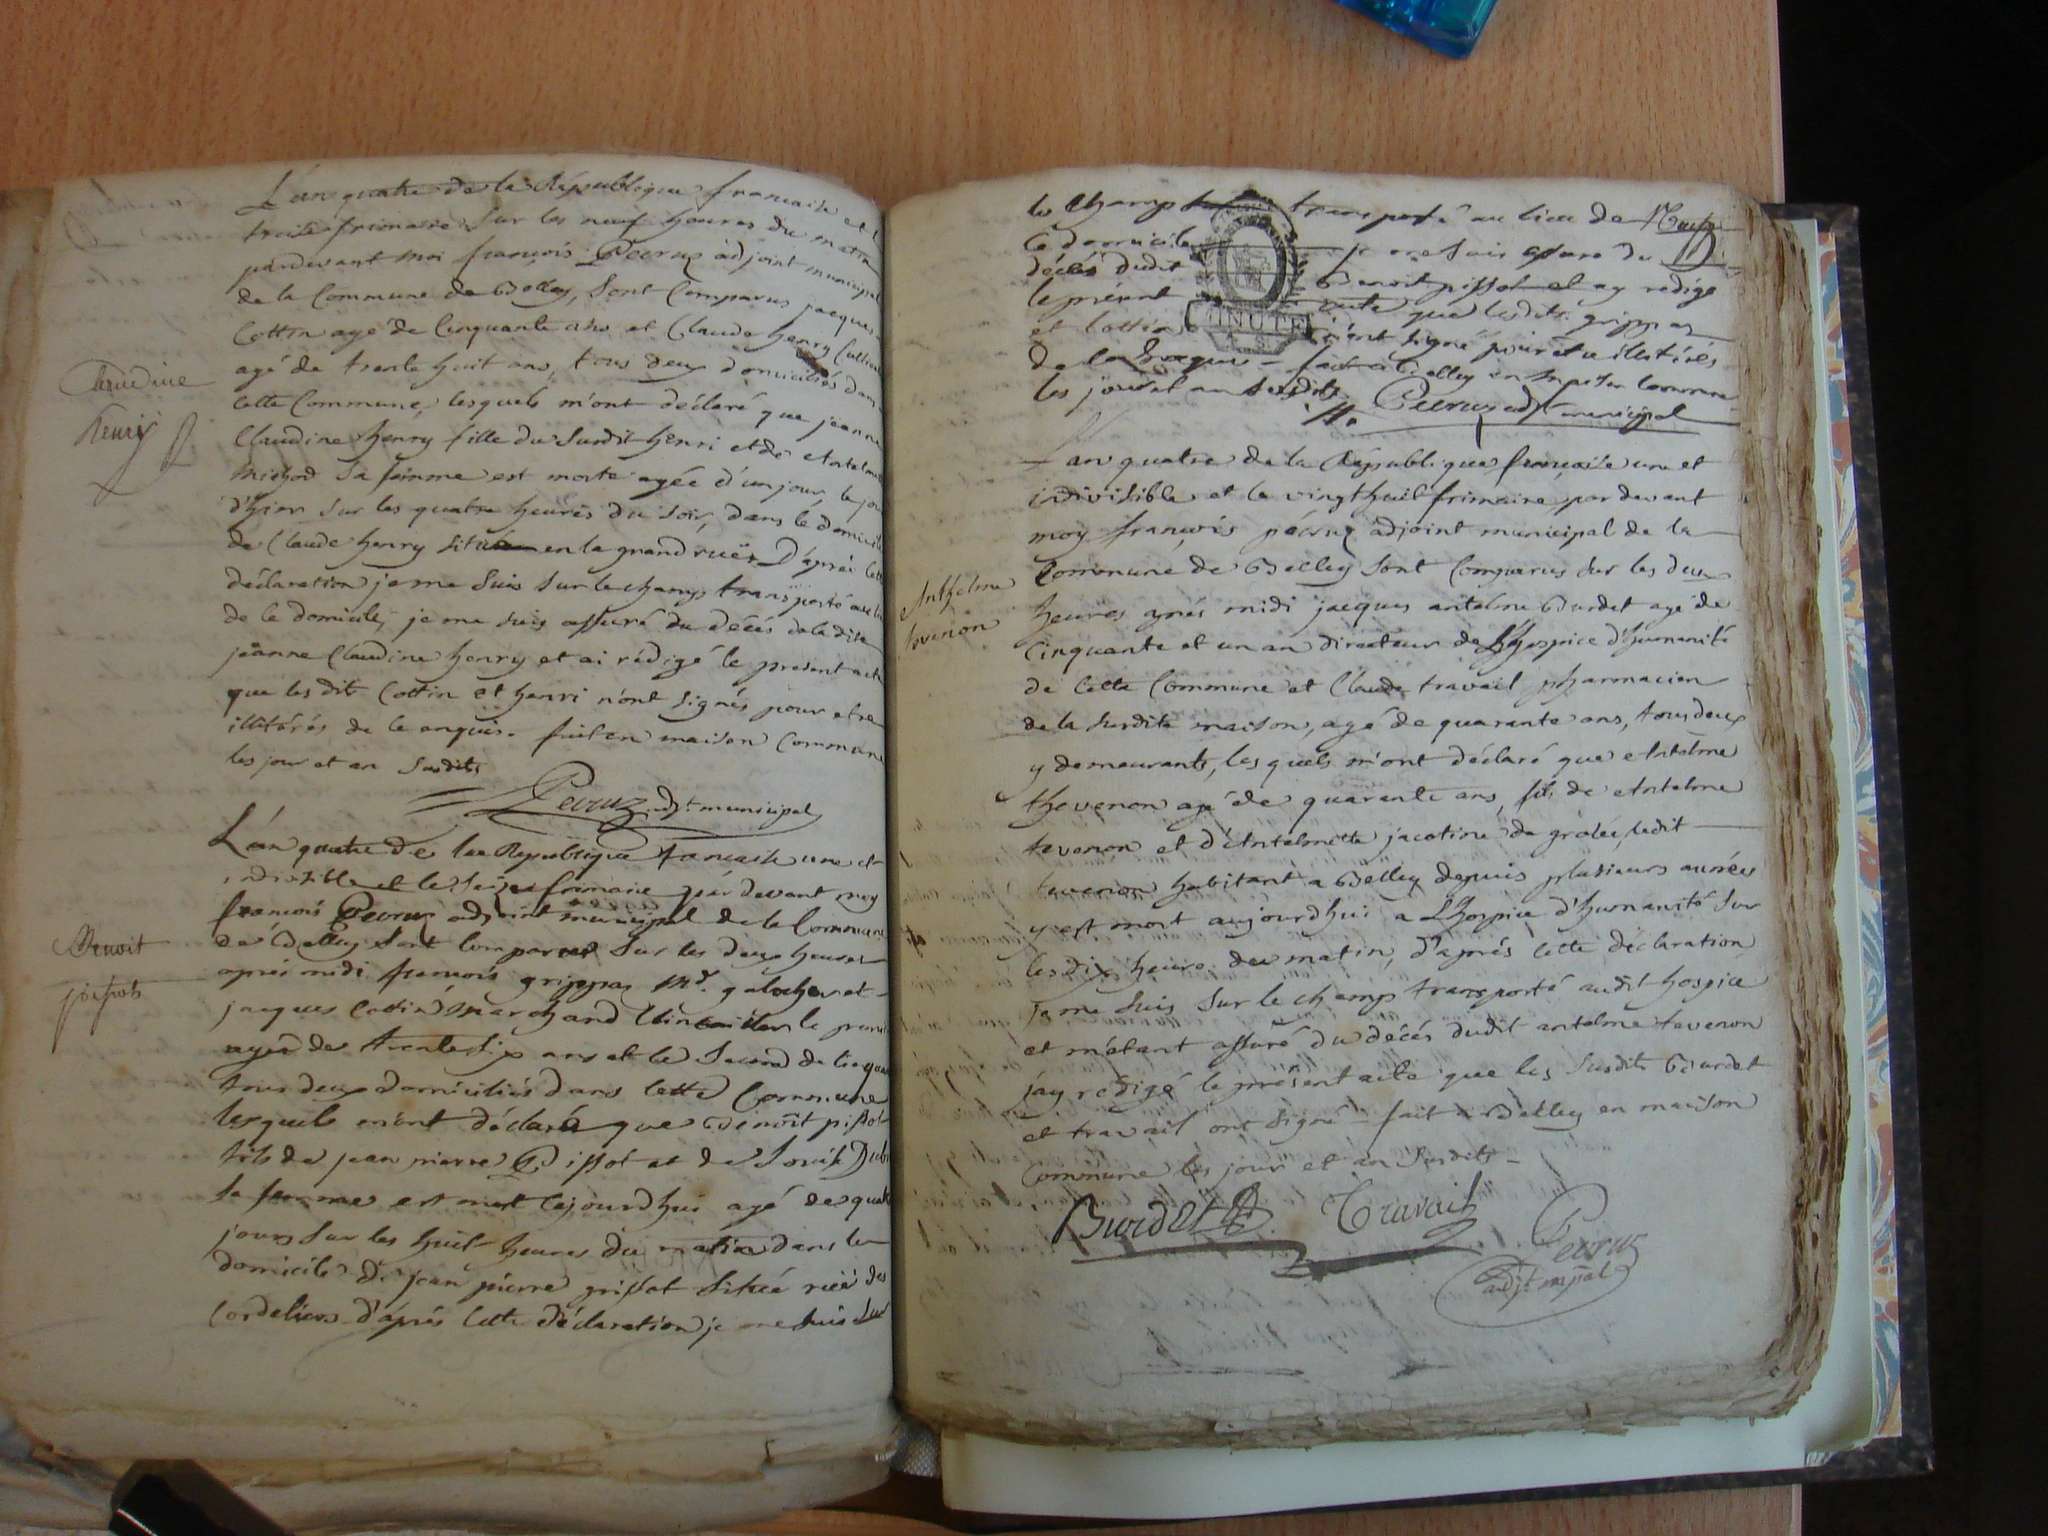 L'an quatre de la République française et
treize frimaire sur les neuf heures du matin
pardevant moi françois Pecruz adjoint municipal
de la Commune de Belley, sont Comparus jacques
Cottin agé de Cinquante ans et Claude henry
agé de trente huit ans, tous deux domiciliés dans
cette Commune, lesquels m'ont déclaré que jeanne
Claudine henry fille du susdit henri et de Antelme
michod sa femme est morte agée d'un jour, le jour
d'hier sur les quatre heures du soir, dans le domicile
de Claude henry situé en la grand rue, D'après cette
déclaration je me suis sur le champ transporté au lieu
de le domicile, je me suis assuré du décès de la dite
jeanne Claudine henry et ai rédigé le present acte
que les dits Cottin et henri n'ont signés pour etre
illitérés de ce enquis. fait en maison Commune
les jour et an susdits
Pecruz adjt municipal
Claudine
henry
L'an quatre de la Republique francaise une et
indivisible et le seize frimaire par devant moy
francois Pecruz adjoint municipal de la Commune
de Belley sont comparus sur les deux heures
après midi francois grippas md. galocher et
jacques Cottin marchand le premier
agé de trente six ans et le second de cinquante
tous deux domiciliés dans cette Commune
lesquels m'ont déclaré que Benoit pissot
fils de jean pierre Pissot et de Louise
sa femme est mort cejourdhui agé de quatre
jours sur les huit heures du matin dans le
domicile de jean pierre grissot situé rue des
Cordeliers d'après cette déclaration je me suis sur
Benoit
pissot
le champ transporté au lieu de
le domicile je me suis assuré du
décés dudit Benoit pissot et ay redigé
le présent acte que lesdits grippas
et Cottin n'ont signé pour etre illitérés
de ce enquis fait a Belley en maison commune
les jour et an susdits.
Pecruz adjt municipal
MINUTE
L'an quatre de la République française une et
indivisible et le vingt huit frimaire, par devant
moy françois pécruz adjoint municipal de la
Commune de Belley sont Comparus sur les deux
heures après midi jacques antelme Burdet agé de
Cinquante et un an directeur de L'hospice d'humanité
de cette Commune et Claude travail pharmacien
de la susdite maison, agé de quarante ans, tous deux
y demeurants, les quels m'ont déclaré que Antelme
thevenon agé de quarante ans, fils de Antelme
tevenon et d'Antelmette jacotine de grolée, ledit
tevenon habitant a Belley depuis plusieurs années
y est mort aujourdhui a L'hospice d'humanité sur
les dix heure du matin, d'après cette déclaration
je me suis sur le champ transporté audit hospice
et m'étant assuré du décés dudit antelme tevenon
j'ay redigé le présent acte que les susdits Burdet
et travail ont signé fait a Belley en maison
Commune les jour et an susdits
Burdet Travail Pecruz
adjt mpal
Anthelme
tevenon